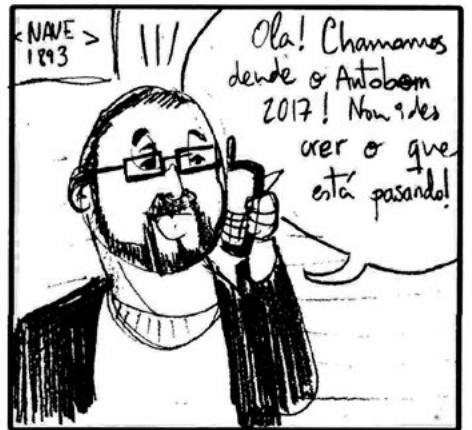 < NAVE >
1893
Ola! Chamamos
dende o Autobom
2017! Non ides
crer o que
está pasando!